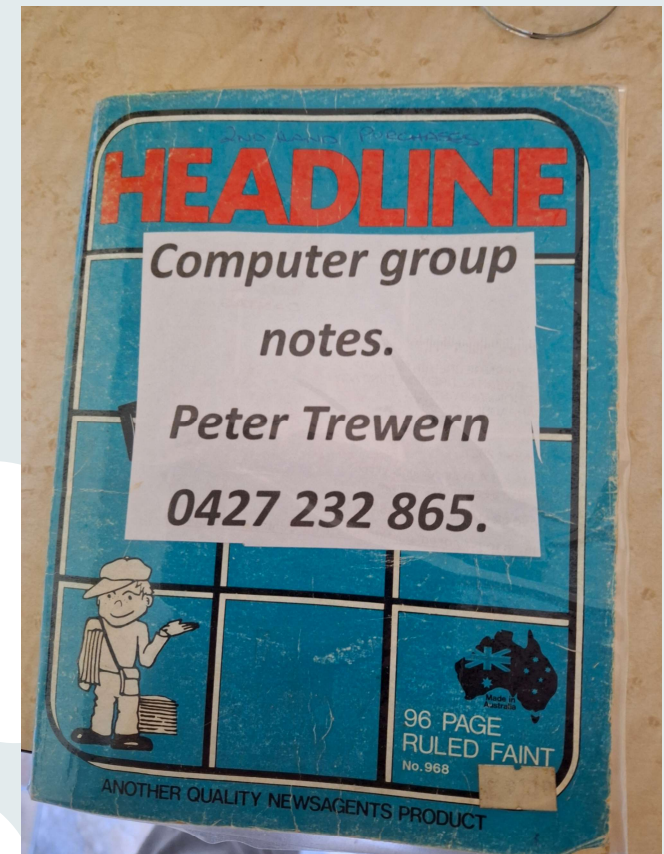 2ND HAND PURCHASES
HEADLINE
Computer group
notes.
Peter Trewern
0427 232 865.
Made in
Australia
96 PAGE
RULED FAINT
No.968
ANOTHER QUALITY NEWSAGENTS PRODUCT